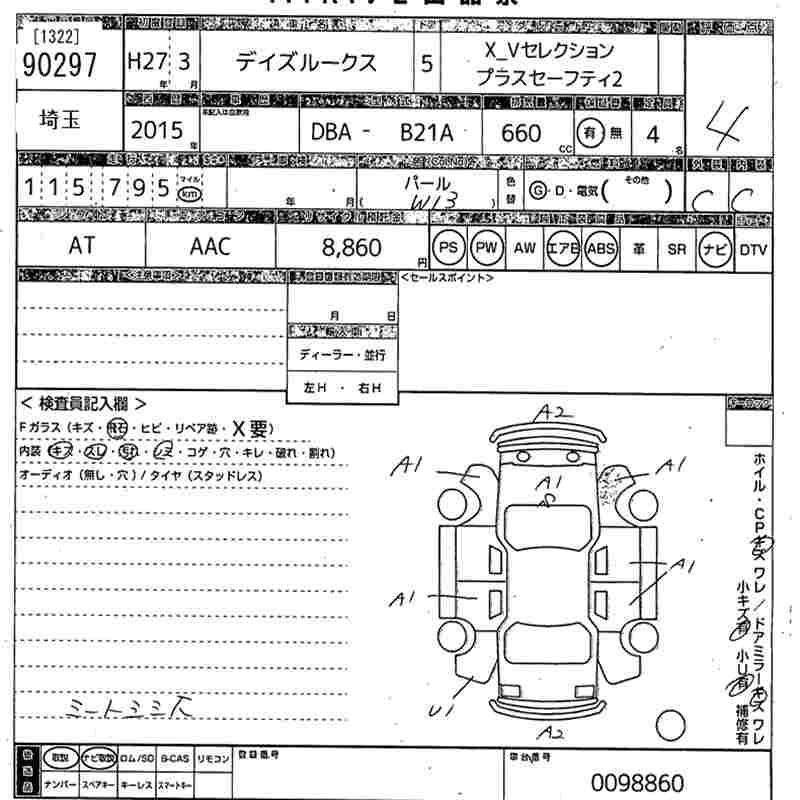 [1322]
90297
H27 3
年 月
デイズルークス
5
X_Vセレクション
プラスセーフティ2
埼玉
2015
年
DBA - B21A
660
CC
有 無
4
名
4
115,795
マイル
km
年 月
パール
( W13 )
色替
G・D・電気( その他 )
C C
AT
AAC
8,860
円
PS PW AW エアB ABS 革 SR ナビ DTV
<セールスポイント>
月 日
ディーラー・並行
左H ・ 右H
< 検査員記入欄 >
Fガラス (キズ・飛石・ヒビ・リペア跡・X要)
内装 (キズ・スレ・汚れ・シミ・コゲ・穴・キレ・破れ・割れ)
オーディオ (無し・穴) / タイヤ (スタッドレス)
A2
A1
A1
A1
A1
A1
U1
A2
ホイル・CPキズワレ/ドアミラーキズワレ
小キズ有 小U有 補修有
取説 ナビ取説 ロム/SD B-CAS リモコン
ナンバー スペアキー キーレス スマートキー
登録番号
車台番号
0098860